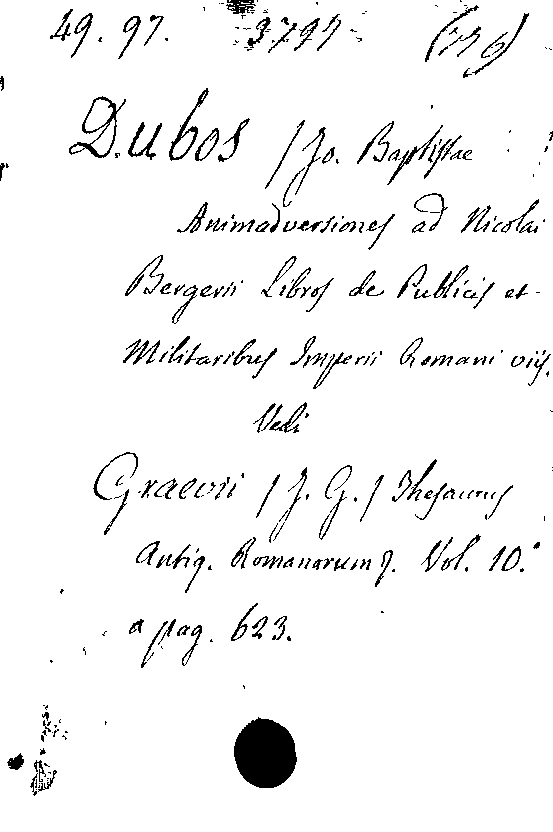 49. 97. 3797 (776)
Dubos /Jo. Baptistae
Animadversiones ad Nicolai
Bergerii Libros de Publicis et
Militaribus Imperii Romani viis.
Vedi
Graevii /J. G./ Thesaurus
Antiq. Romanarum Vol. 10.°
a pag. 623.